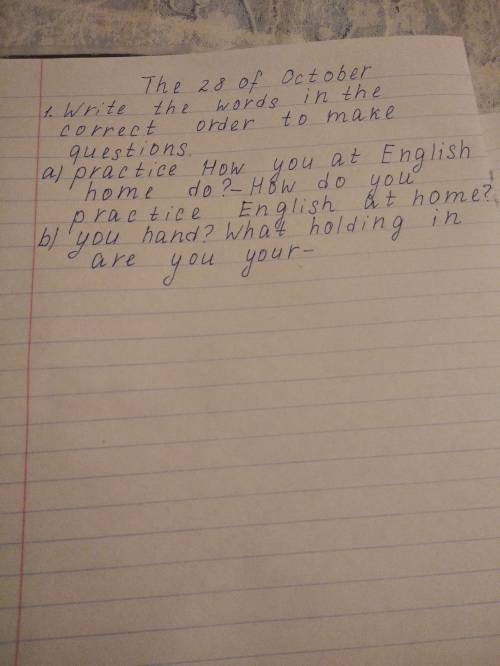 The 28 of October
1. Write the words in the
correct order to make
questions.
a) practice How you at English
home do? – How do you
practice English at home?
b) you hand? What holding in
are you your –